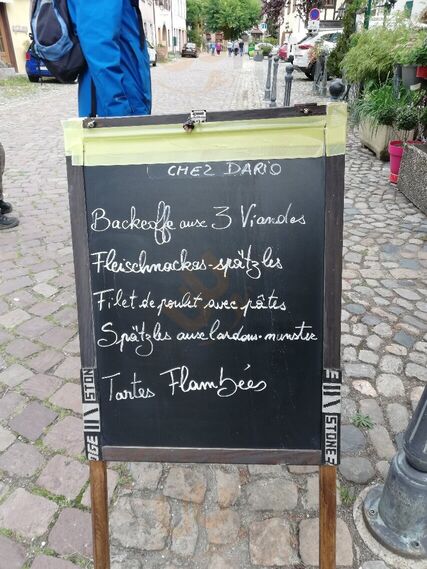 CHEZ DARIO
Backeoffe aux 3 Viandes
Fleischnackas-spätzles
Filet de poulet avec pâtes
Spätzles aux lardons-munster
Tartes Flambées